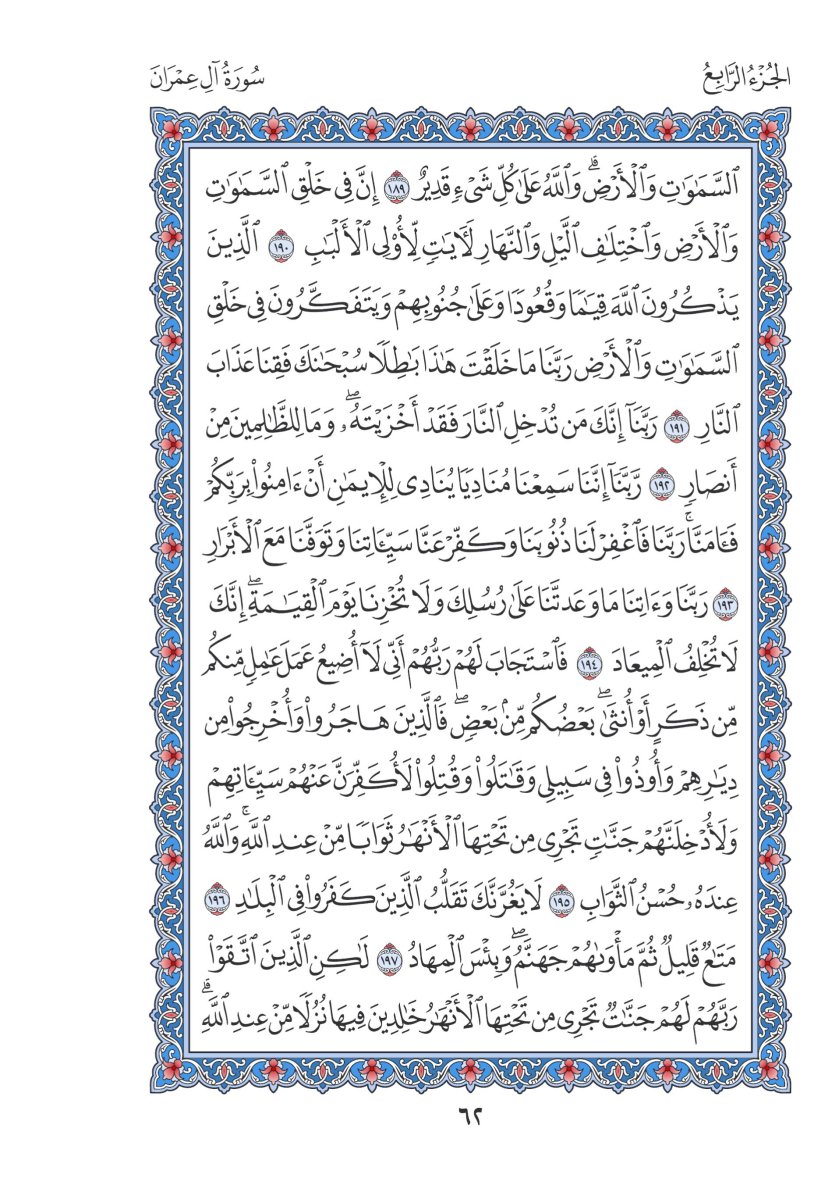 الجُزْءُ الرَّابِعُ
سُورَةُ آلِ عِمْرَانَ
ٱلسَّمَٰوَٰتِ وَٱلْأَرْضِۗ وَٱللَّهُ عَلَىٰ كُلِّ شَىْءٖ قَدِيرٌ ١٨٩ إِنَّ فِى خَلْقِ ٱلسَّمَٰوَٰتِ
وَٱلْأَرْضِ وَٱخْتِلَٰفِ ٱلَّيْلِ وَٱلنَّهَارِ لَأٓيَٰتٖ لِّأُو۟لِى ٱلْأَلْبَٰبِ ١٩٠ ٱلَّذِينَ
يَذْكُرُونَ ٱللَّهَ قِيَٰمٗا وَقُعُودٗا وَعَلَىٰ جُنُوبِهِمْ وَيَتَفَكَّرُونَ فِى خَلْقِ
ٱلسَّمَٰوَٰتِ وَٱلْأَرْضِ رَبَّنَا مَا خَلَقْتَ هَٰذَا بَٰطِلٗا سُبْحَٰنَكَ فَقِنَا عَذَابَ
ٱلنَّارِ ١٩١ رَبَّنَآ إِنَّكَ مَن تُدْخِلِ ٱلنَّارَ فَقَدْ أَخْزَيْتَهُۥۖ وَمَا لِلظَّٰلِمِينَ مِنْ
أَنصَارٖ ١٩٢ رَّبَّنَآ إِنَّنَا سَمِعْنَا مُنَادِيٗا يُنَادِى لِلْإِيمَٰنِ أَنْ ءَامِنُوا۟ بِرَبِّكُمْ
فَـَٔامَنَّاۚ رَبَّنَا فَٱغْفِرْ لَنَا ذُنُوبَنَا وَكَفِّرْ عَنَّا سَيِّـَٔاتِنَا وَتَوَفَّنَا مَعَ ٱلْأَبْرَارِ
١٩٣ رَبَّنَا وَءَاتِنَا مَا وَعَدتَّنَا عَلَىٰ رُسُلِكَ وَلَا تُخْزِنَا يَوْمَ ٱلْقِيَٰمَةِۖ إِنَّكَ
لَا تُخْلِفُ ٱلْمِيعَادَ ١٩٤ فَٱسْتَجَابَ لَهُمْ رَبُّهُمْ أَنِّى لَآ أُضِيعُ عَمَلَ عَٰمِلٖ مِّنكُم
مِّن ذَكَرٍ أَوْ أُنثَىٰۖ بَعْضُكُم مِّنۢ بَعْضٖۖ فَٱلَّذِينَ هَاجَرُوا۟ وَأُخْرِجُوا۟ مِن
دِيَٰرِهِمْ وَأُوذُوا۟ فِى سَبِيلِى وَقَٰتَلُوا۟ وَقُتِلُوا۟ لَأُكَفِّرَنَّ عَنْهُمْ سَيِّـَٔاتِهِمْ
وَلَأُدْخِلَنَّهُمْ جَنَّٰتٖ تَجْرِى مِن تَحْتِهَا ٱلْأَنْهَٰرُ ثَوَابٗا مِّنْ عِندِ ٱللَّهِۚ وَٱللَّهُ
عِندَهُۥ حُسْنُ ٱلثَّوَابِ ١٩٥ لَا يَغُرَّنَّكَ تَقَلُّبُ ٱلَّذِينَ كَفَرُوا۟ فِى ٱلْبِلَٰدِ ١٩٦
مَتَٰعٌ قَلِيلٌ ثُمَّ مَأْوَىٰهُمْ جَهَنَّمُۖ وَبِئْسَ ٱلْمِهَادُ ١٩٧ لَٰكِنِ ٱلَّذِينَ ٱتَّقَوْا۟
رَبَّهُمْ لَهُمْ جَنَّٰتٌ تَجْرِى مِن تَحْتِهَا ٱلْأَنْهَٰرُ خَٰلِدِينَ فِيهَا نُزُلٗا مِّنْ عِندِ ٱللَّهِۗ
٦٢